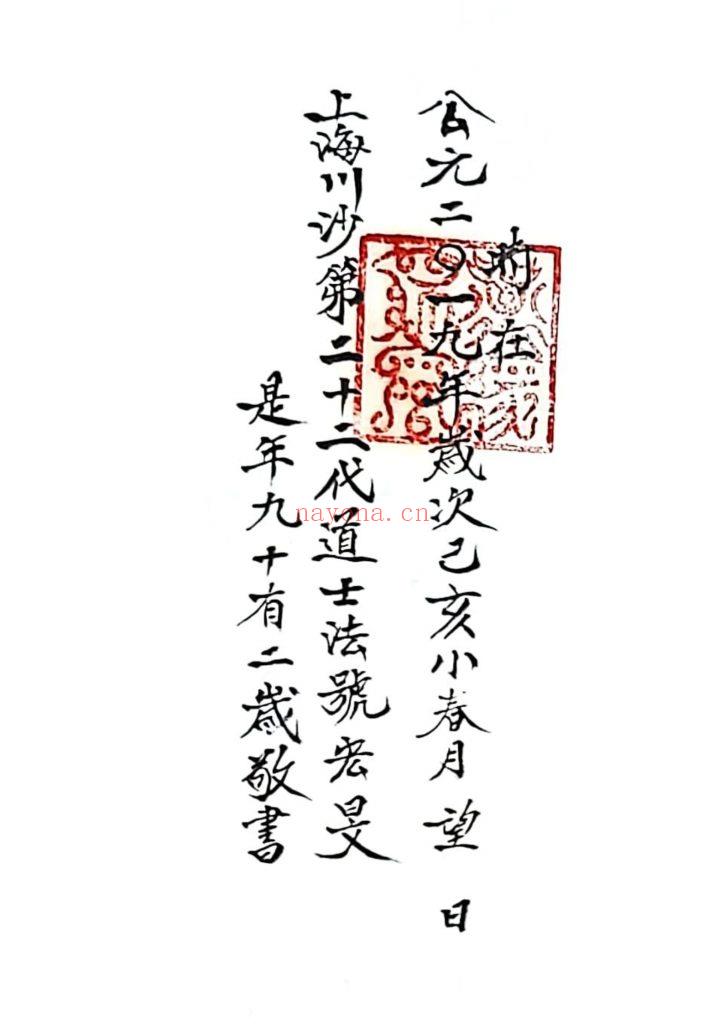 時在
公元二〇一九年歲次己亥小春月望日
上海川沙第二十二代道士法號宏旻
是年九十有二歲敬書
nayona.cn